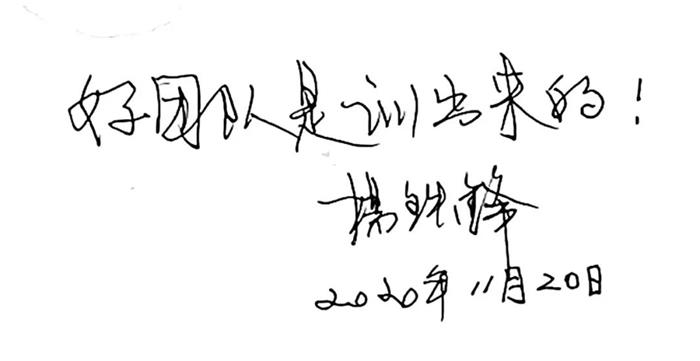 好团队是训出来的！
杨铁锋
2020年11月20日